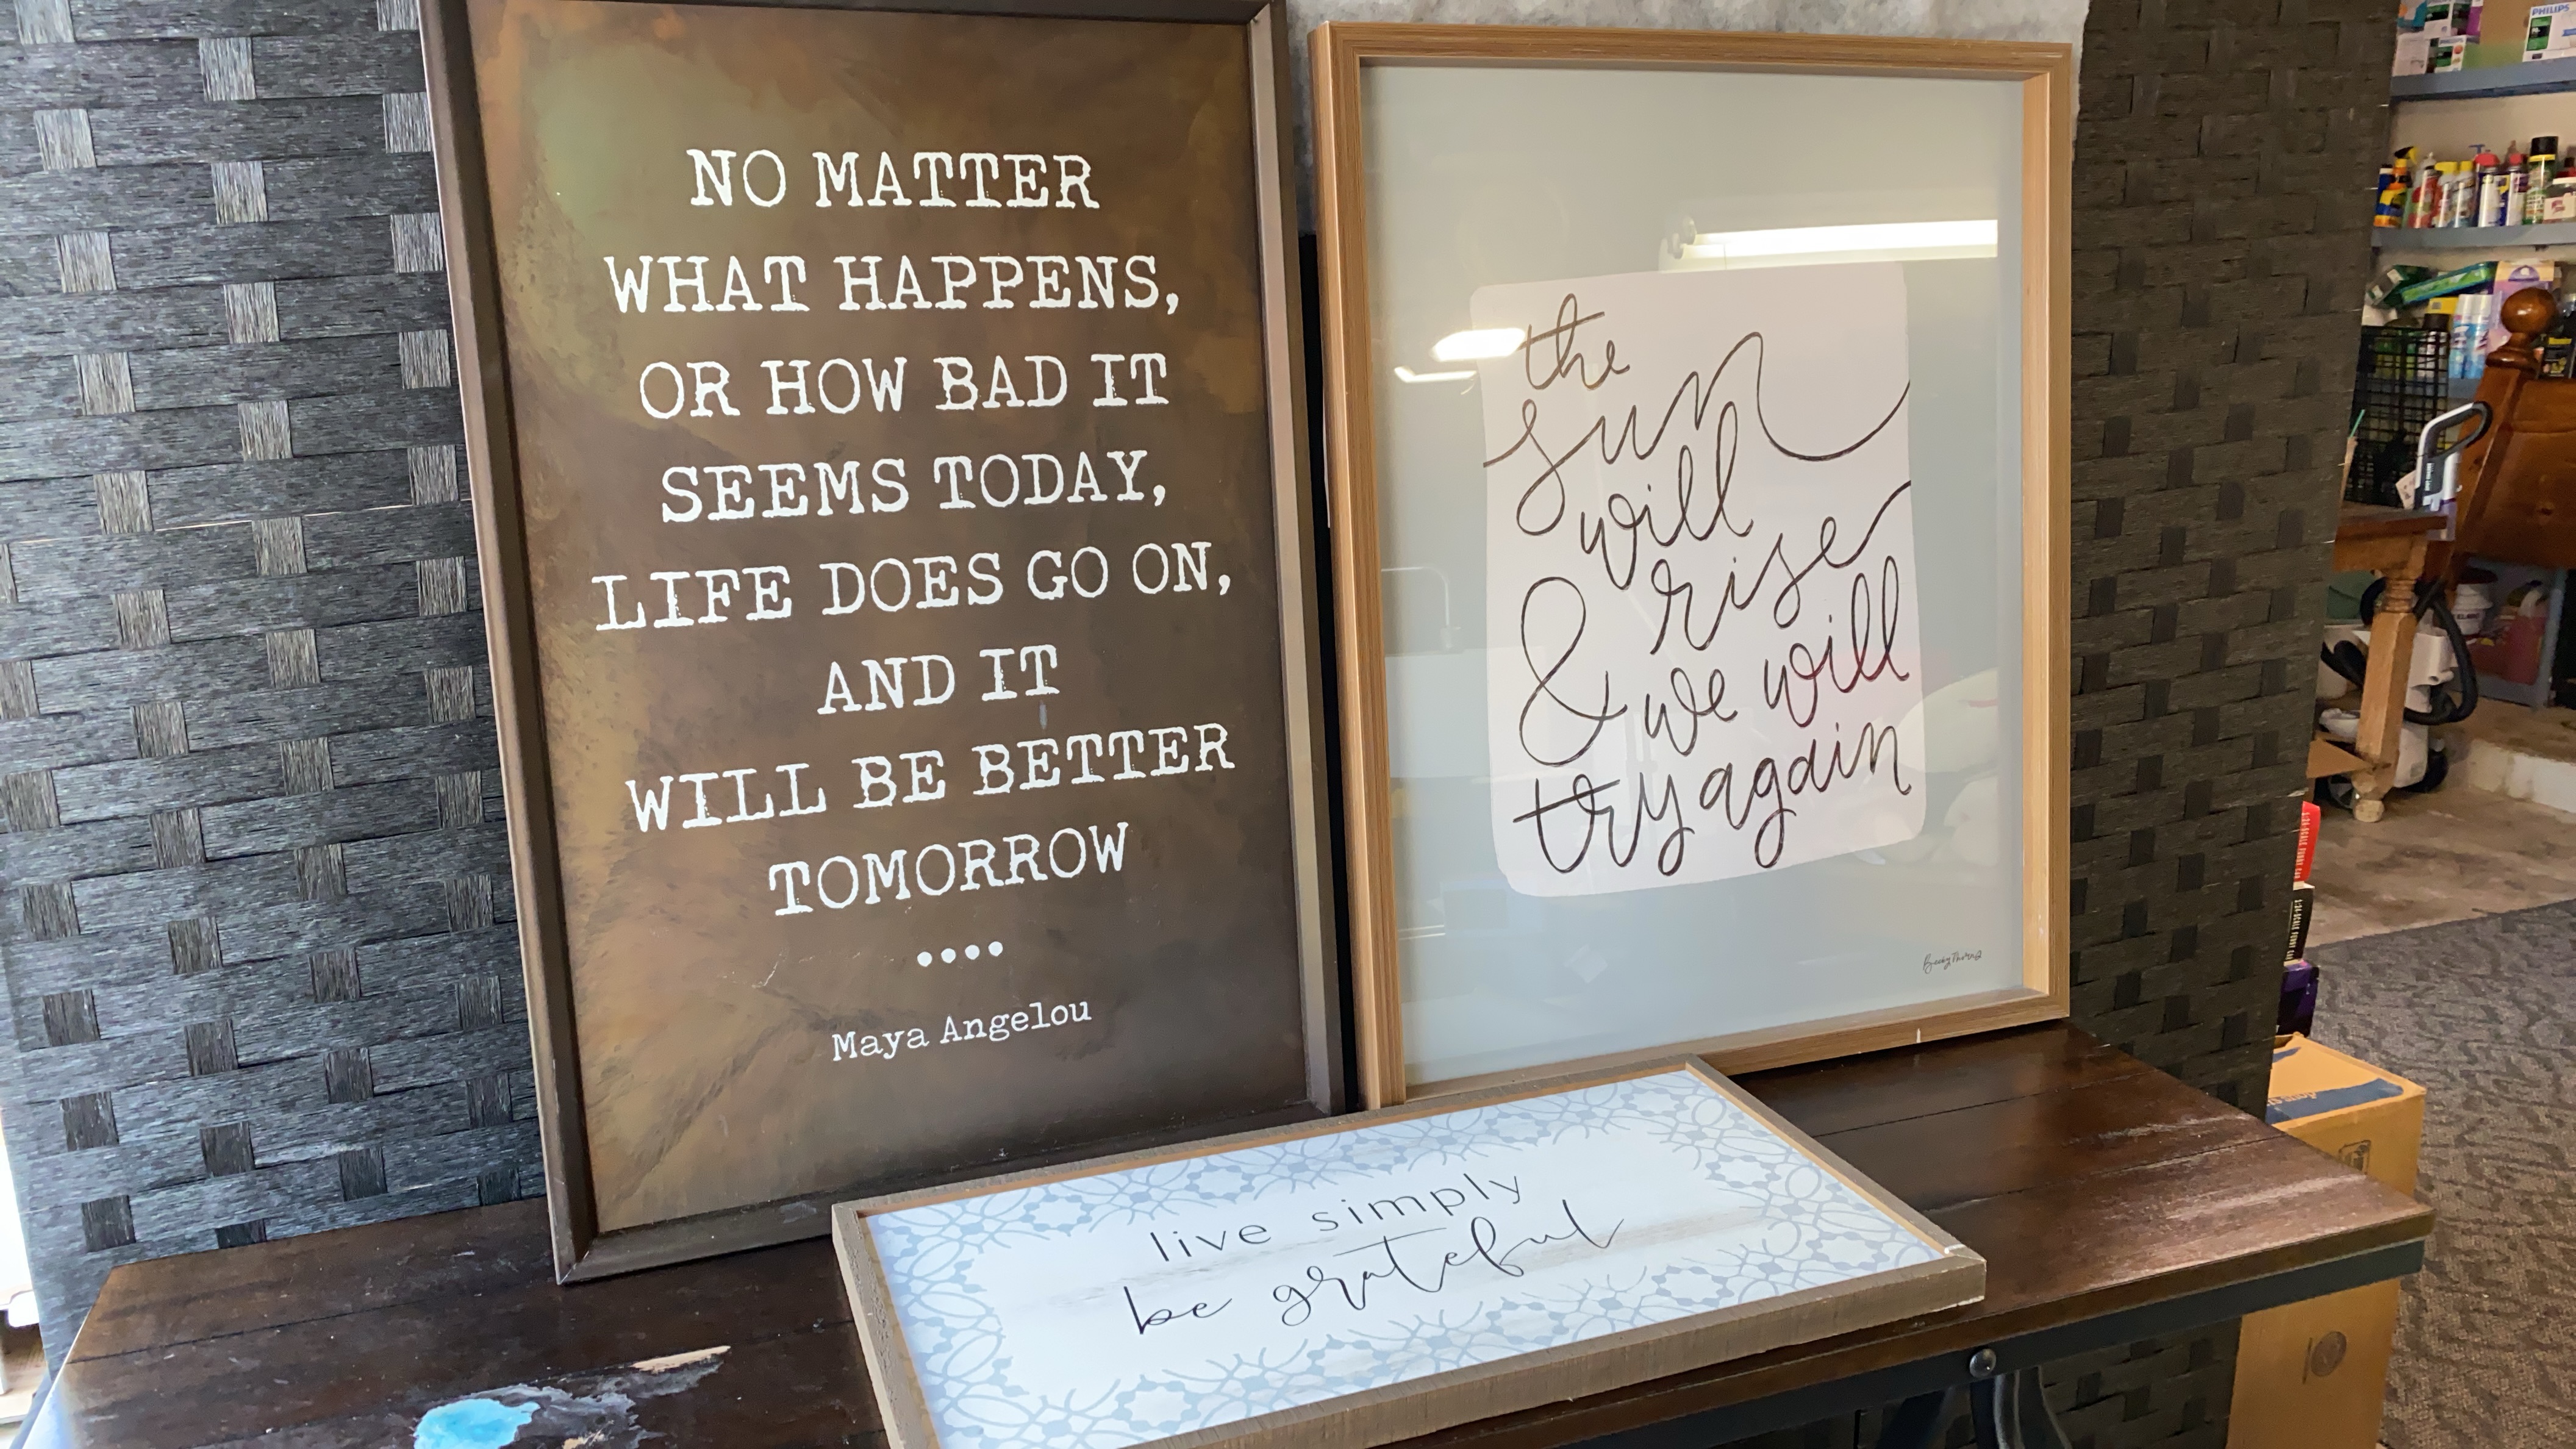 NO MATTER
WHAT HAPPENS,
OR HOW BAD IT
SEEMS TODAY,
LIFE DOES GO ON,
AND IT
WILL BE BETTER
TOMORROW
••••
Maya Angelou
the
sun
will
rise
& we will
try again
live simply
be grateful
PHILIPS